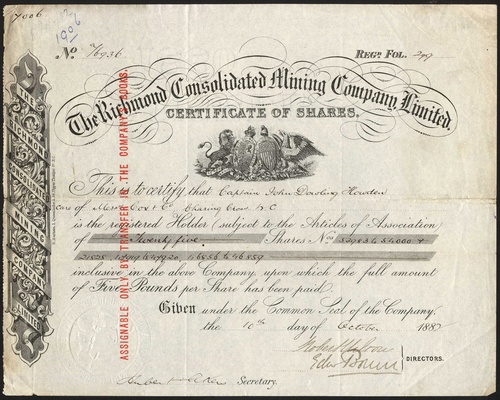 7006
1906
No. 76936
REGD. FOL. 299
The Richmond Consolidated Mining Company Limited.
CERTIFICATE OF SHARES.
This is to certify that Captain John Dowling Howden
care of Messrs Cox & Co Charing Cross S.C
is the registered Holder (subject to the Articles of Association)
of Twenty five Shares Nos
inclusive in the above Company, upon which the full amount
of Five Pounds per Share has been paid.
Given under the Common Seal of the Company,
the 10th day of October 188
DIRECTORS.
Secretary.
THE RICHMOND CONSOLIDATED MINING COMPANY LIMITED
ASSIGNABLE ONLY BY TRANSFER IN THE COMPANY'S BOOKS.